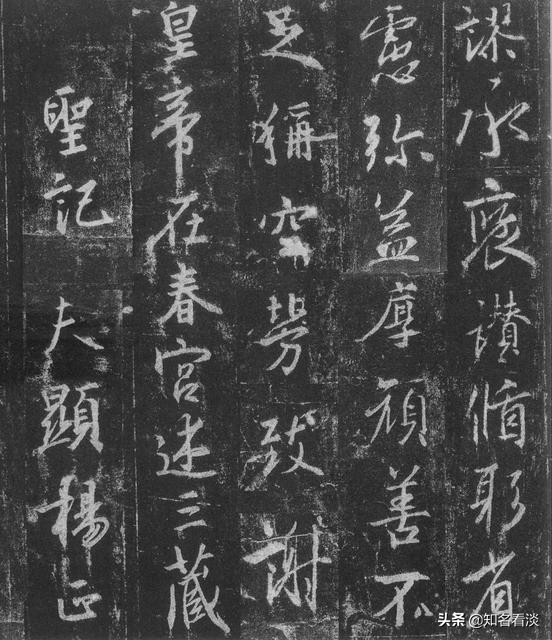 謬承褒讚循躬省
慮彌益厚顏善不
足稱空勞致謝
皇帝在春宮述三藏
聖記 夫顯揚正
头条 @知名看淡